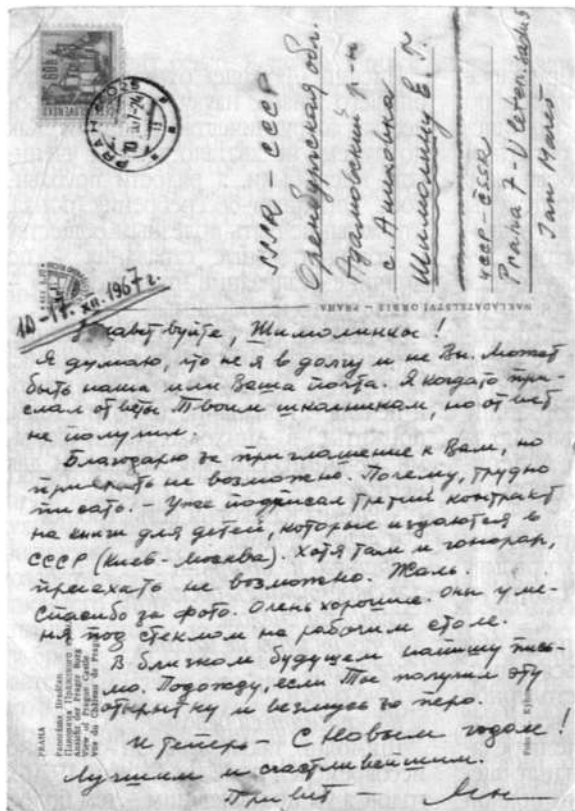 PRAHA 025
SSSR - СССР
Оренбургская обл.
Адамовский р-н
с. Аниховка
Шимолину Е. Г.
ЧССР-ČSSR
Praha 7 - V leten. sadu 5
Jan Mareš
NAKLADATELSTVÍ ORBIS – PRAHA
XII. 1967 г.
Здравствуйте, Шимолинки!
Я думаю, что не я в долгу и не Вы. Может
быть наша или Ваша почта. Я когдато при-
слал ответы Твоим школьникам, но ответ
не получил.
Благодарю за приглашение к Вам, но
приехать не возможно. Почему, трудно
писать. - Уже подписал третий контракт
на книги для детей, которые издаются в
СССР (Киев-Москва). Хотя там и гонорар,
приехать не возможно. Жаль.
Спасибо за фото. Очень хорошие. Они у ме-
ня под стеклом на рабочим столе.
В близком будущем напишу пись-
мо. Подожду, если Ты получил эту
открытку и возмусь за перо.
И теперь - С Новым годом!
Лучшим и счастливейшим.
Привет -
PRAHA
Panoráma Hradčan
Панорама Пражского
Ansicht der Prager Burg
View of Prague Castle
Vue du Château de Prague
Foto